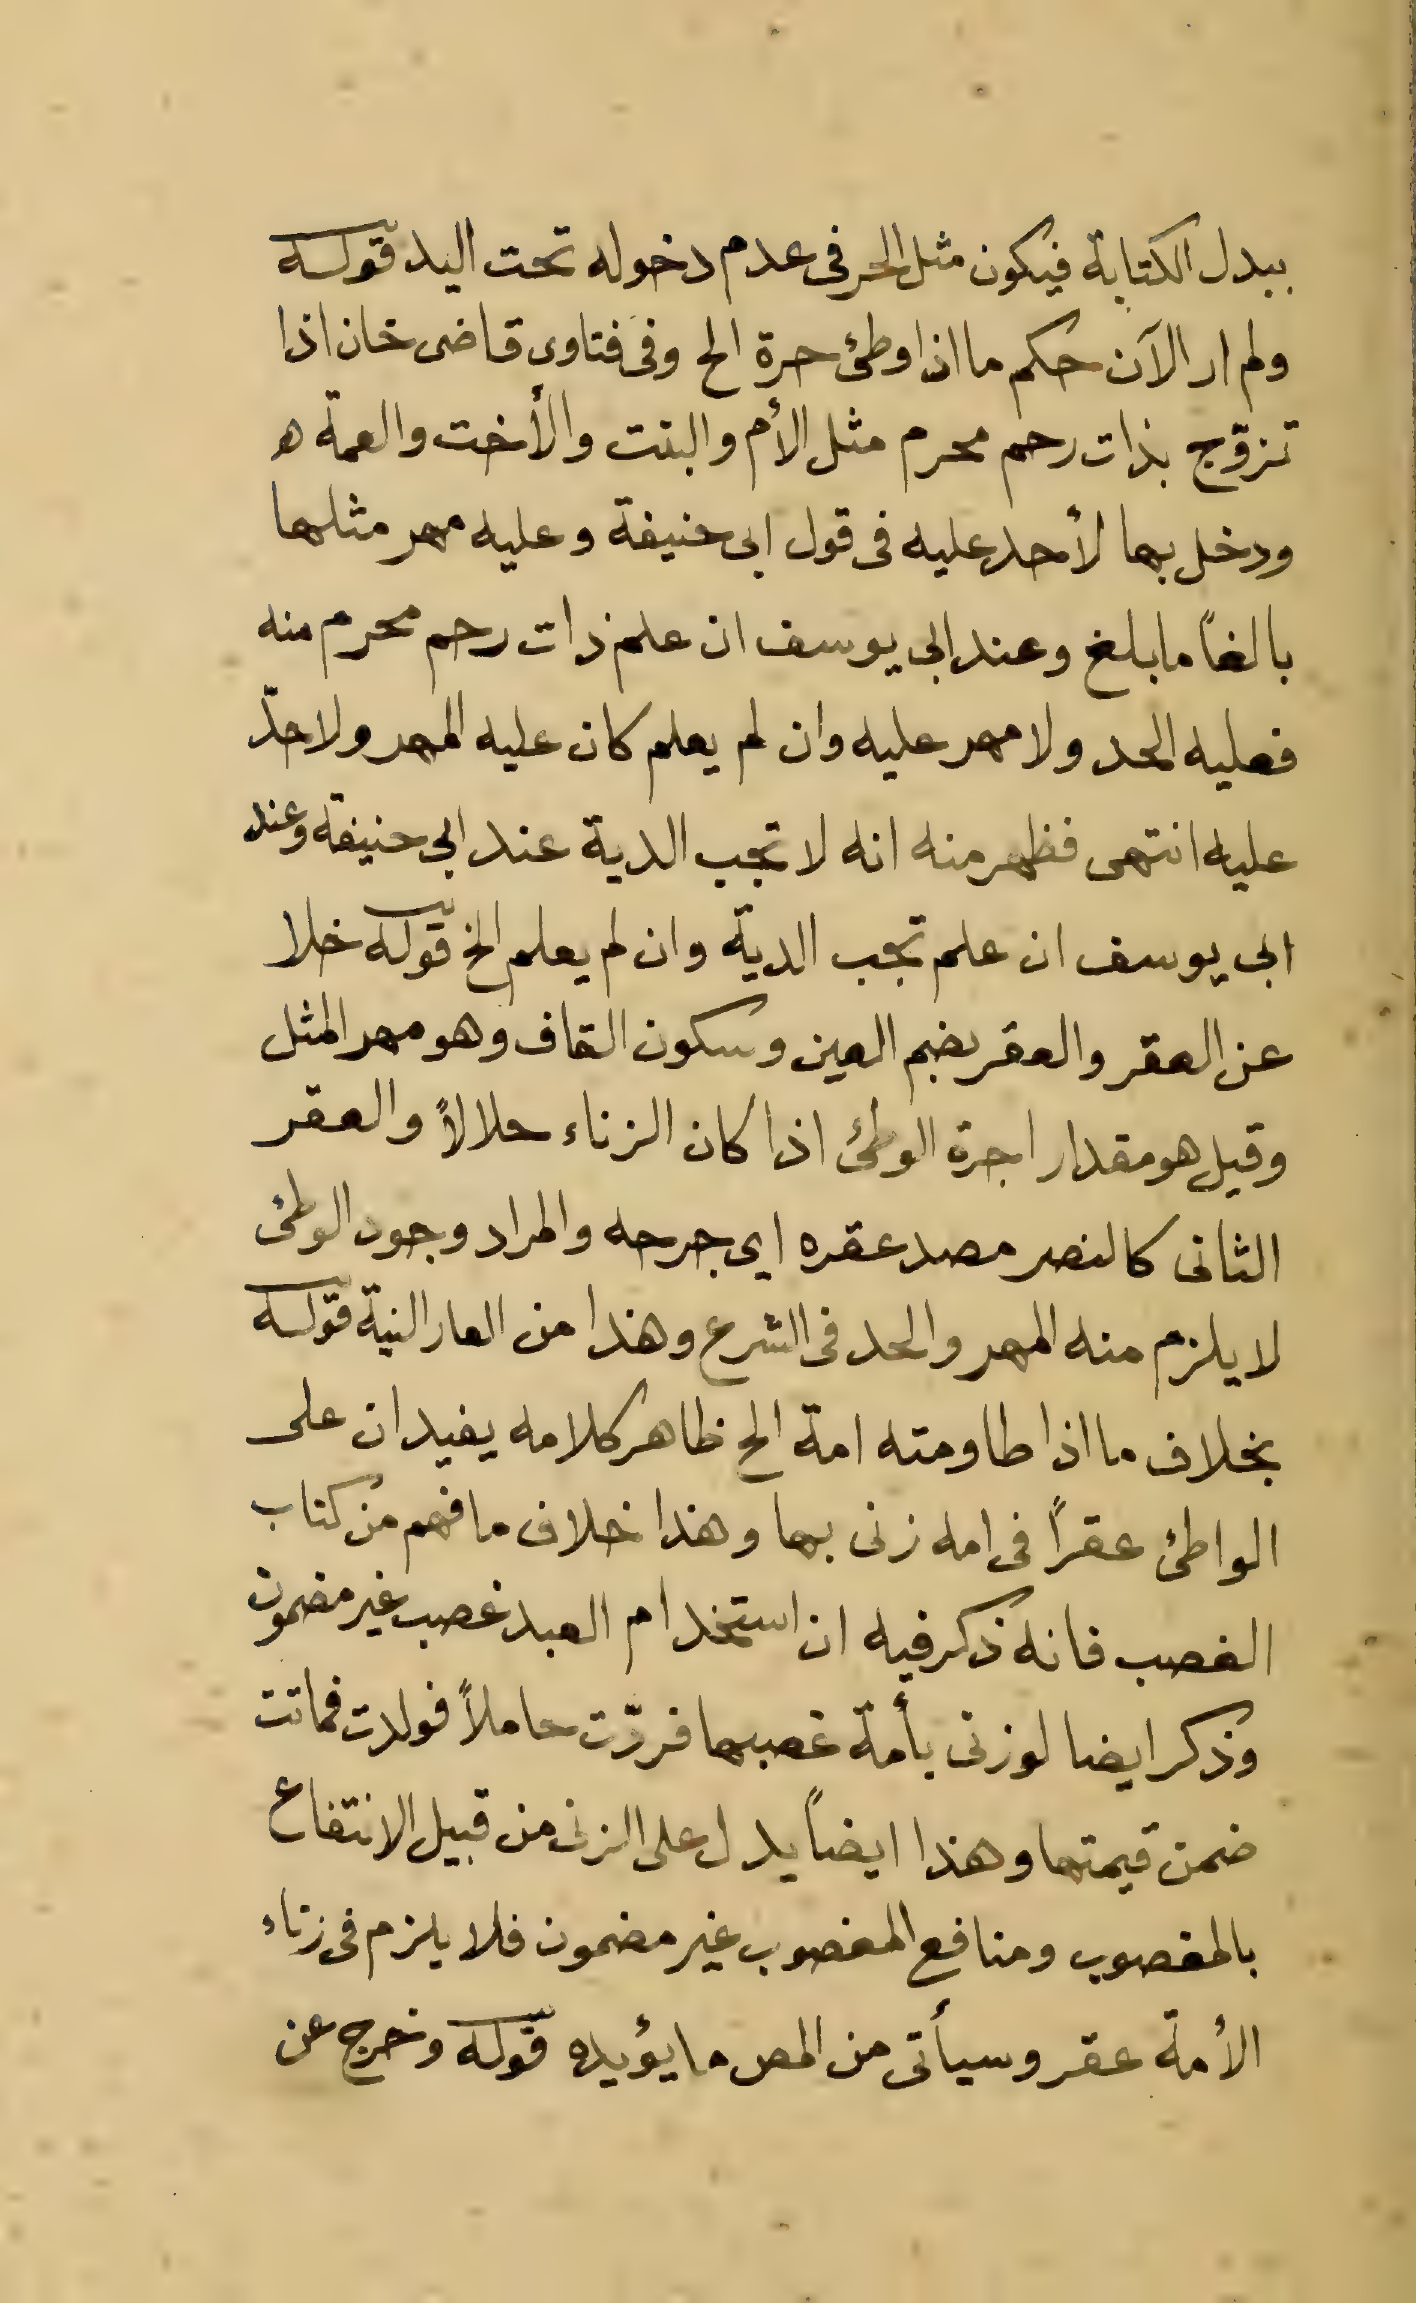 ببدل الكتابة فيكون مثل الحر فى عدم دخوله تحت اليد قوله
ولم ار الآن حكم ما اذا وطئ حرة الخ وفى فتاوى قاضى خان اذا
تزوّج بذات رحم محرم مثل الأم والبنت والأخت والعمة ه
ودخل بها لأحد عليه فى قول ابى حنيفة وعليه مهر مثلها
بالغاً مابلغ وعند ابى يوسف ان علم ذات رحم محرم منه
فعليه الحد ولا مهر عليه وان لم يعلم كان عليه المهر ولا حدّ
عليه انتهى فظهر منه انه لا تجب الدية عند ابى حنيفة وعند
ابى يوسف ان علم تجب الدية وان لم يعلم الخ قوله خلا
عن العقر والعقر بضم العين وسكون القاف وهو مهر المثل
وقيل هو مقدار اجرة الوطئ اذا كان الزناء حلالاً والعقر
الثانى كالنصر مصد عقره اى جرحه والمراد وجود الوطئ
لا يلزم منه المهر والحد فى الشرع وهذا من العار النية قوله
بخلاف ما اذا طاومته امة الخ ظاهر كلامه يفيد ان على
الواطئ عقراً فى امه زنى بها وهذا خلاف ما فهم من كتاب
الغصب فانه ذكر فيه ان استخدام العبد غصب غير مضمون
وذكر ايضا لوزنى بأمة غصبها فردّت حاملاً فولدت فماتت
ضمن قيمتها وهذا ايضاً يدل على الزنى من قبيل الانتفاع
بالمغصوب ومنافع المغصوب غير مضمون فلا يلزم فى زناء
الأمة عقر وسيأتى من المص ما يؤيده قوله وخرج عن